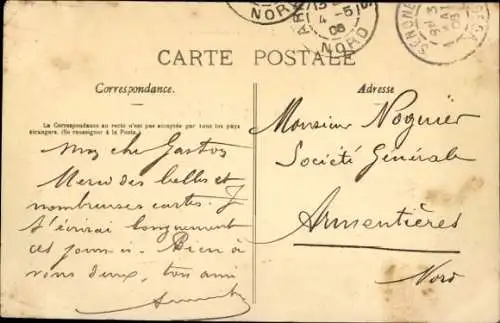 NORD
4-5
06
NORD
CARTE POSTALE
Correspondance.
Adresse
La Correspondance au recto n'est pas acceptée par tous les pays
étrangers. (Se renseigner à la Poste.)
Mon cher Gaston
Merci des belles et
nombreuses cartes. Je
t'écrirai longuement
ces jours-ci. Bien à
vous deux, ton ami
Monsieur Noguier
Société Générale
Armentières
Nord